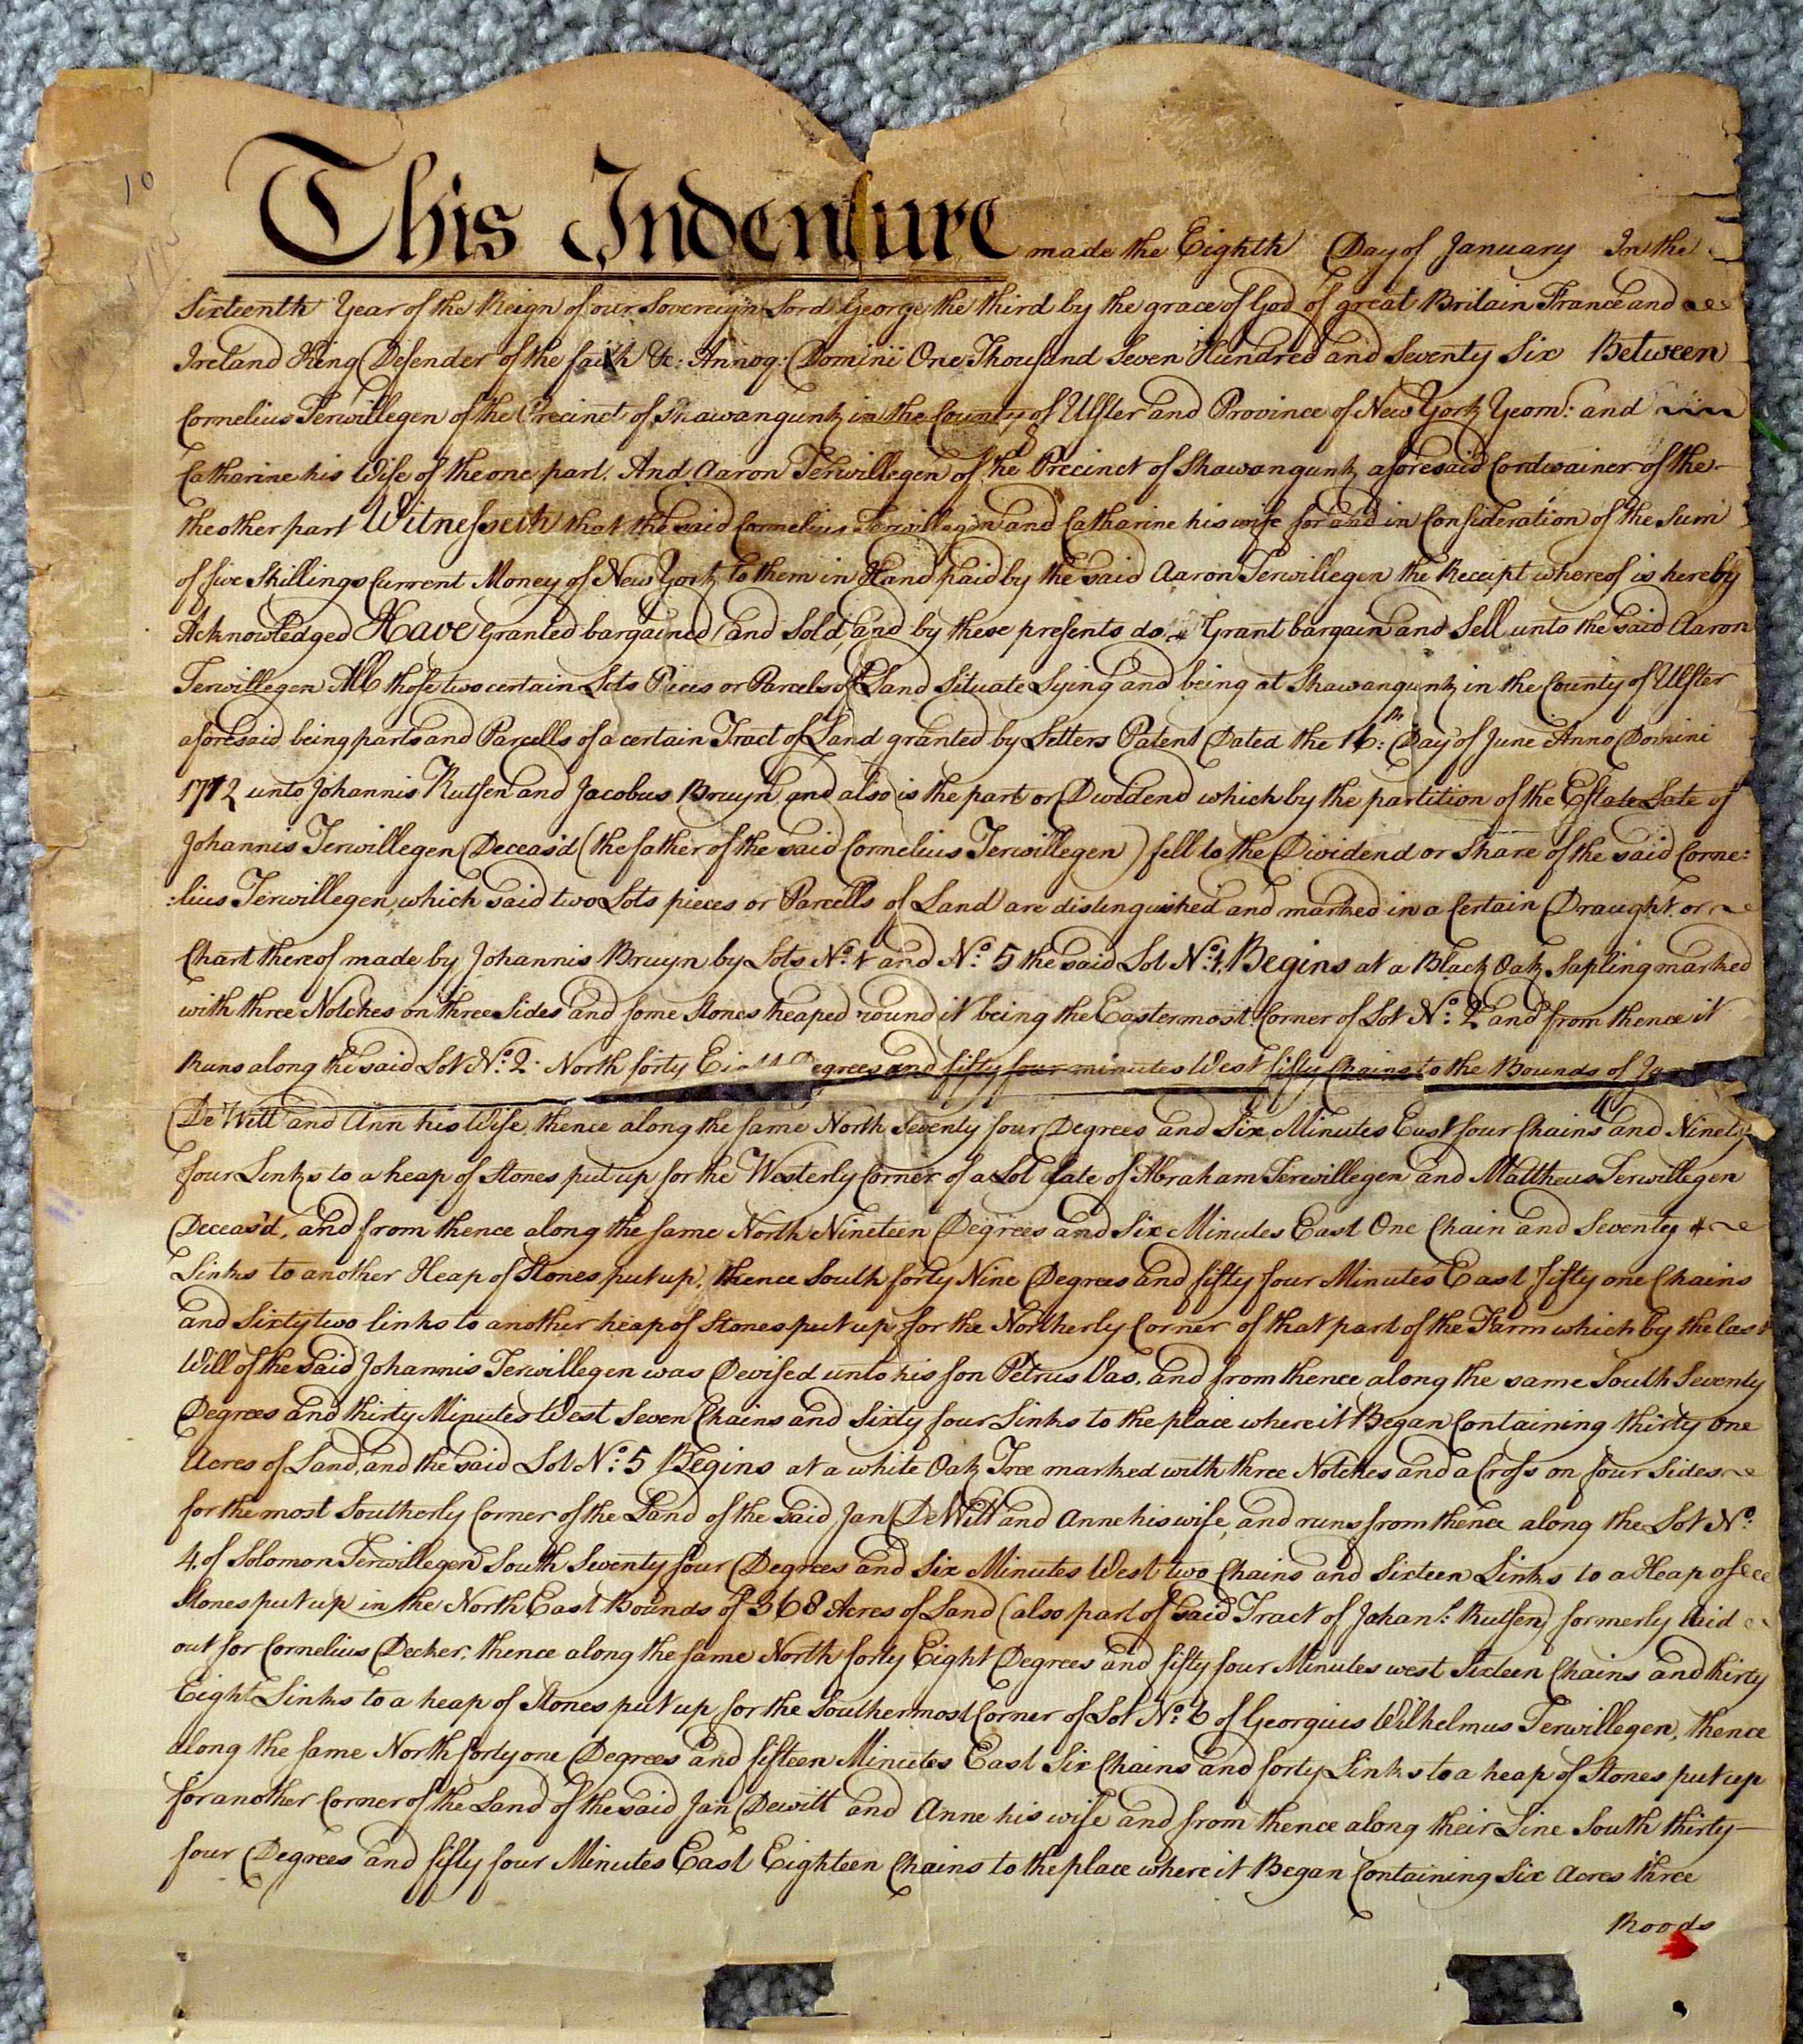 10
This Indenture made the Eighth Day of January In the
Sixteenth Year of the Reign of our Sovereign Lord George the third by the grace of God of great Britain France and
Ireland King Defender of the faith &c: Annoq: Domini One Thousand Seven Hundred and Seventy Six Between
Cornelius Terwillegen of the Precinct of Shawangunk in the County of Ulster and Province of New York Yeomn: and
Catharine his Wife of the one part. And Aaron Terwillegen of the Precinct of Shawangunk aforesaid Cordwainer of the
the other part Witnesseth that the said Cornelius Terwillegen and Catharine his wife for and in Consideration of the Sum
of five Shillings Current Money of New York to them in Hand paid by the said Aaron Terwillegen the Receipt whereof is hereby
Acknowledged Have Granted bargained and Sold, and by these presents do Grant bargain and Sell unto the said Aaron
Terwillegen All those two certain Lots Pieces or Parcels of Land Situate Lying and being at Shawangunk in the County of Ulster
aforesaid being parts and Parcells of a certain Tract of Land granted by Letters Patent Dated the 16th: Day of June Anno Domini
1712 unto Johannis Rutsen and Jacobus Bruyn and also is the part or Dividend which by the partition of the Estate Late of
Johannis Terwillegen Deceas'd (the father of the said Cornelius Terwillegen) fell to the Dividend or Share of the said Corne:
:lius Terwillegen, which said two Lots pieces or Parcells of Land are distinguished and marked in a Certain Draught or
Chart thereof made by Johannis Bruyn by Lots No: 1 and No: 5 the said Lot No: 1, Begins at a Black Oak Sapling marked
with three Notches on three Sides and some Stones heaped round it being the Eastermost Corner of Lot No: 2 and from thence it
Runs along the said Lot No: 2. North forty Degrees and fifty four minutes West fifty Chains to the Bounds of
De Witt and Ann his Wife, thence along the same North Seventy four Degrees and Six Minutes East four Chains and Ninety
four Links to a heap of Stones put up for the Westerly Corner of a Lot late of Abraham Terwillegen and Mattheus Terwillegen
Deceas'd, and from thence along the same North Nineteen Degrees and Six Minutes East One Chain and Seventy
Links to another Heap of Stones put up, thence South forty Nine Degrees and fifty four Minutes East fifty one Chains
and Sixty two links to another heap of Stones put up for the Northerly Corner of that part of the Farm which by the last
Will of the said Johannis Terwillegen was Devised unto his son Petrus Vas, and from thence along the same South Seventy
Degrees and thirty Minutes West Seven Chains and Sixty four Links to the place where it Began Containing thirty one
Acres of Land, and the said Lot No: 5 Begins at a white Oak Tree marked with three Notches and a Cross on four Sides
for the most Southerly Corner of the Land of the said Jan De Witt and Anne his wife, and runs from thence along the Lot No:
4, of Solomon Terwillegen South Seventy four Degrees and Six Minutes West two Chains and Sixteen Links to a Heap of
Stones put up in the North East Bounds of 368 Acres of Land (also part of said Tract of Johans: Rutsen) formerly laid
out for Cornelius Decker, thence along the same North forty Eight Degrees and fifty four Minutes west Sixteen Chains and thirty
Eight Links to a heap of Stones put up for the Southermost Corner of Lot No: 6 of Georgius Wilhelmus Terwillegen, thence
along the same North forty one Degrees and fifteen Minutes East Six Chains and forty Links to a heap of Stones put up
for another Corner of the Land of the said Jan Dewitt and Anne his wife and from thence along their Line South thirty
four Degrees and fifty four Minutes East Eighteen Chains to the place where it Began Containing Six Acres three
Roods